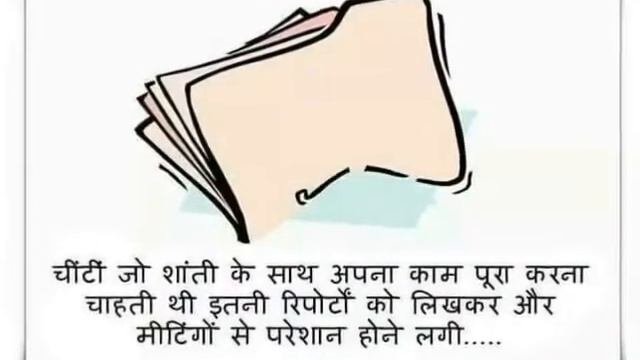 चींटीं जो शांती के साथ अपना काम पूरा करना
चाहती थी इतनी रिपोर्टों को लिखकर और
मीटिंगों से परेशान होने लगी.....